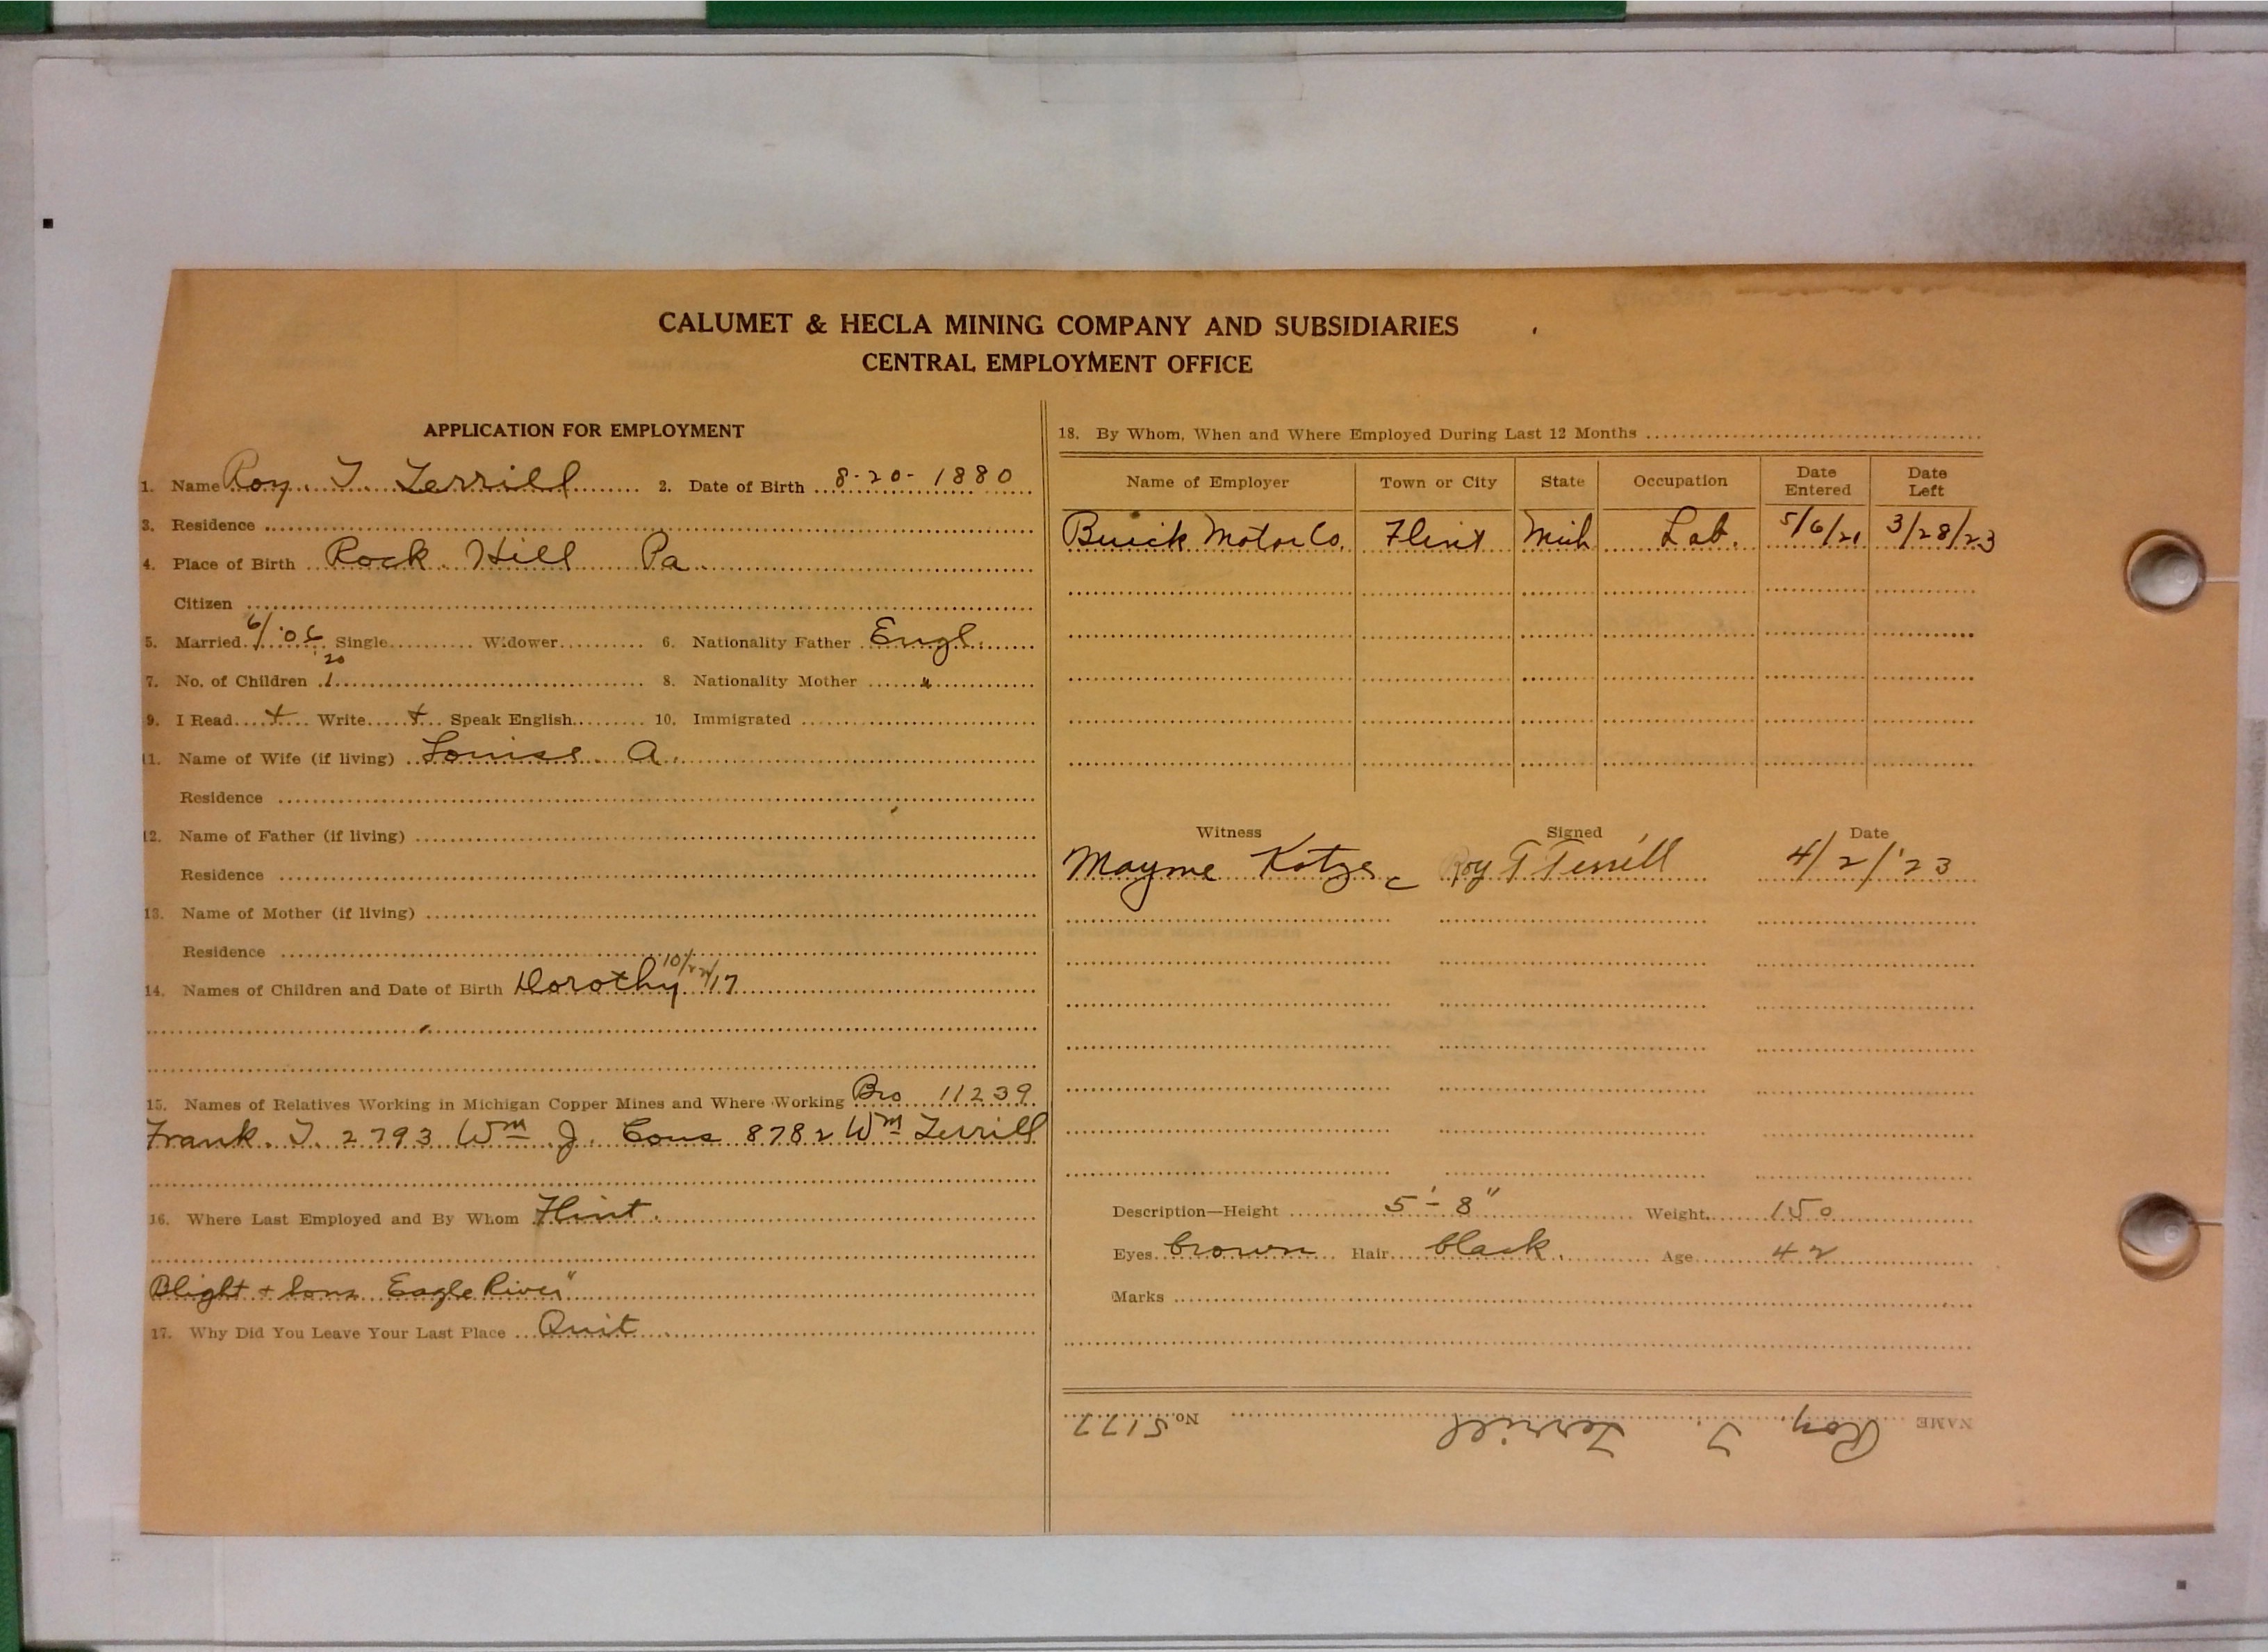 CALUMET & HECLA MINING COMPANY AND SUBSIDIARIES
CENTRAL EMPLOYMENT OFFICE
APPLICATION FOR EMPLOYMENT
1. Name Roy. T. Terrill 2. Date of Birth 8-20-1880
3. Residence
4. Place of Birth Rock Hill Pa.
Citizen
5. Married 6/'06 Single Widower 6. Nationality Father Engl.
20
7. No. of Children 1 8. Nationality Mother "
9. I Read + Write + Speak English 10. Immigrated
11. Name of Wife (if living) Louise A.
Residence
12. Name of Father (if living)
Residence
13. Name of Mother (if living)
Residence
14. Names of Children and Date of Birth Dorothy 10/22/17
15. Names of Relatives Working in Michigan Copper Mines and Where Working Bro 11239
Frank. T. 2793 Wm J. Cous 8782 Wm Terrill
16. Where Last Employed and By Whom Flint.
Blight + Sons Eagle River"
17. Why Did You Leave Your Last Place Quit
18. By Whom, When and Where Employed During Last 12 Months
Name of Employer Town or City State Occupation Date Entered Date Left
Buick Motor Co. Flint Mich Lab. 5/6/21 3/28/23
Witness Signed Date
Mayme Kotze Roy T Terrill 4/2/'23
Description—Height 5'-8" Weight 150
Eyes brown Hair black. Age 42
Marks
NAME Roy. T. Terrill No. 5177